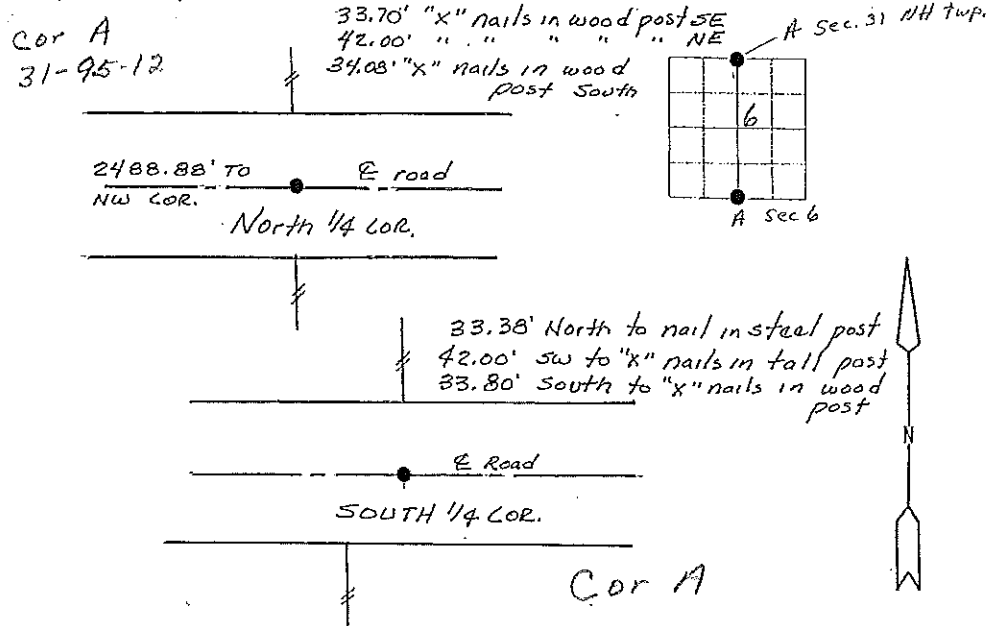 Cor A
31-95-12
33.70' "X" nails in wood post SE
42.00' " " " " " NE
34.08' "X" nails in wood
post South
A Sec. 31 NH twp.
6
A Sec 6
2488.88' TO
NW COR.
℄ road
North 1/4 COR.
33.38' North to nail in steel post
42.00' SW to "X" nails in tall post
33.80' South to "X" nails in wood
post
℄ Road
SOUTH 1/4 COR.
N
Cor A